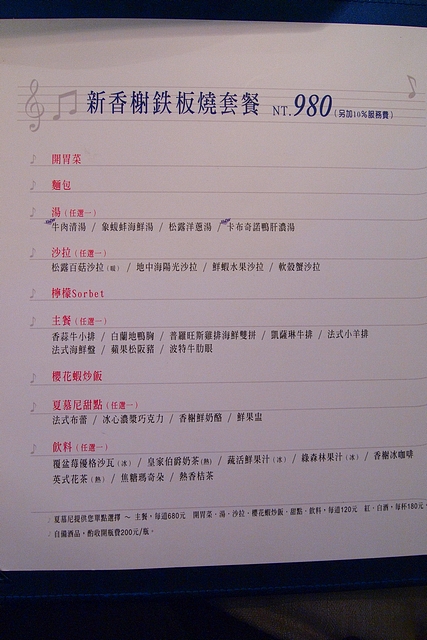 新香榭鉄板燒套餐 NT.980 (另加10%服務費)
開胃菜
麵包
湯(任選一)
牛肉清湯 / 象鮁蚌海鮮湯 / 松露洋蔥湯 / 卡布奇諾鴨肝濃湯
沙拉(任選一)
松露百菇沙拉(暖) / 地中海陽光沙拉 / 鮮蝦水果沙拉 / 軟殼蟹沙拉
檸檬Sorbet
主餐(任選一)
香蒜牛小排 / 白蘭地鴨胸 / 普羅旺斯雞排海鮮雙拼 / 凱薩琳牛排 / 法式小羊排
法式海鮮盤 / 蘋果松阪豬 / 波特牛肋眼
櫻花蝦炒飯
夏慕尼甜點(任選一)
法式布蕾 / 冰心濃漿巧克力 / 香榭鮮奶酪 / 鮮果盅
飲料(任選一)
覆盆莓優格沙瓦(冰) / 皇家伯爵奶茶(熱) / 蔬活鮮果汁(冰) / 綠森林果汁(冰) / 香榭冰咖啡
英式花茶(熱) / 焦糖瑪奇朵 / 熱香桔茶
夏慕尼提供您單點選擇 ~ 主餐，每道680元 開胃菜、湯、沙拉、櫻花蝦炒飯、甜點、飲料，每道120元 紅、白酒，每杯180元，
自備酒品，酌收開瓶費200元/瓶。